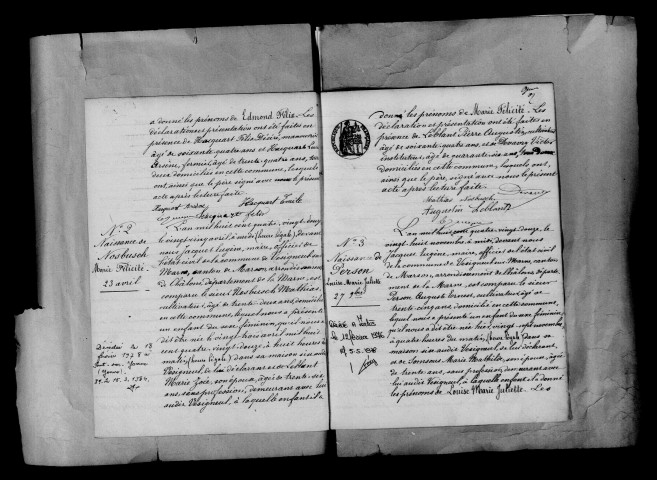 a donné les prénoms de Edmond Félix. Les
déclaration et présentation ont été faites en
présence de Hacquart Félix Désiré, manouvrier
âgé de soixante-quatre ans et Hacquart
Arsène, fermier, âgé de trente-quatre ans, tous
deux domiciliés en cette commune, lesquels
ont, ainsi que le père, signé avec nous le présent
acte après lecture faite.
Hacquart Arsène Hacquart Emile
félix
N° 2
Naissance de
Nosbusch
Marie Félicité.
23 avril
Décédée le 13
1978
L'an mil huit cent quatre-vingt-douze
le vingt-cinq avril à midi (heure légale), devant
nous Jacquet Eugène, maire, officier de
l'état civil de la commune de Vésigneul-sur
Marne, canton de Marson, arrondissement
de Châlons, département de la Marne, est
comparu le sieur Nosbusch Mathias,
cultivateur, âgé de trente-deux ans, domicilié
en cette commune, lequel nous a présenté
un enfant du sexe féminin, qu'il nous a
dit être né le vingt-trois avril mil huit
cent quatre-vingt-douze à huit heures du
matin, (heure légale), dans sa maison sise audit
Vésigneul, de lui déclarant et de Leblanc
Marie Zoé, son épouse, âgée de trente-
ans, sans profession, demeurant avec lui
audit Vésigneul, à laquelle enfant il a
donné les prénoms de Marie Félicité. Les
déclaration et présentation ont été faites en
présence de Leblanc Pierre Augustin,
âgé de soixante-quatre ans, et de Victor
instituteur, âgé de quarante-six ans, tous deux
domiciliés en cette commune, lesquels ont,
ainsi que le père, signé avec nous le présent
acte après lecture faite.
Mathias Nosbusch
Augustin Leblanc
N° 3
Naissance de
Person
Louise Marie Juliette
27 9bre
L'an mil huit cent quatre-vingt-douze, le
vingt-huit novembre à midi, devant nous
Jacquet Eugène, maire, officier de l'état civil
de la commune de Vésigneul-sur-Marne, canton
de Marson, arrondissement de Châlons, département
de la Marne, est comparu le sieur
Person Auguste, cultivateur, âgé de
trente-cinq ans, domicilié en cette commune,
lequel nous a présenté un enfant du sexe féminin,
qu'il nous a dit être née hier vingt-sept novembre,
à quatre heures du matin, (heure légale) dans sa
maison sise audit Vésigneul, de lui déclarant,
et de Marie Mathilde, son épouse, âgée
de trente ans, sans profession, demeurant avec
lui audit Vésigneul, à laquelle enfant il a donné
les prénoms de Louise Marie Juliette. Les